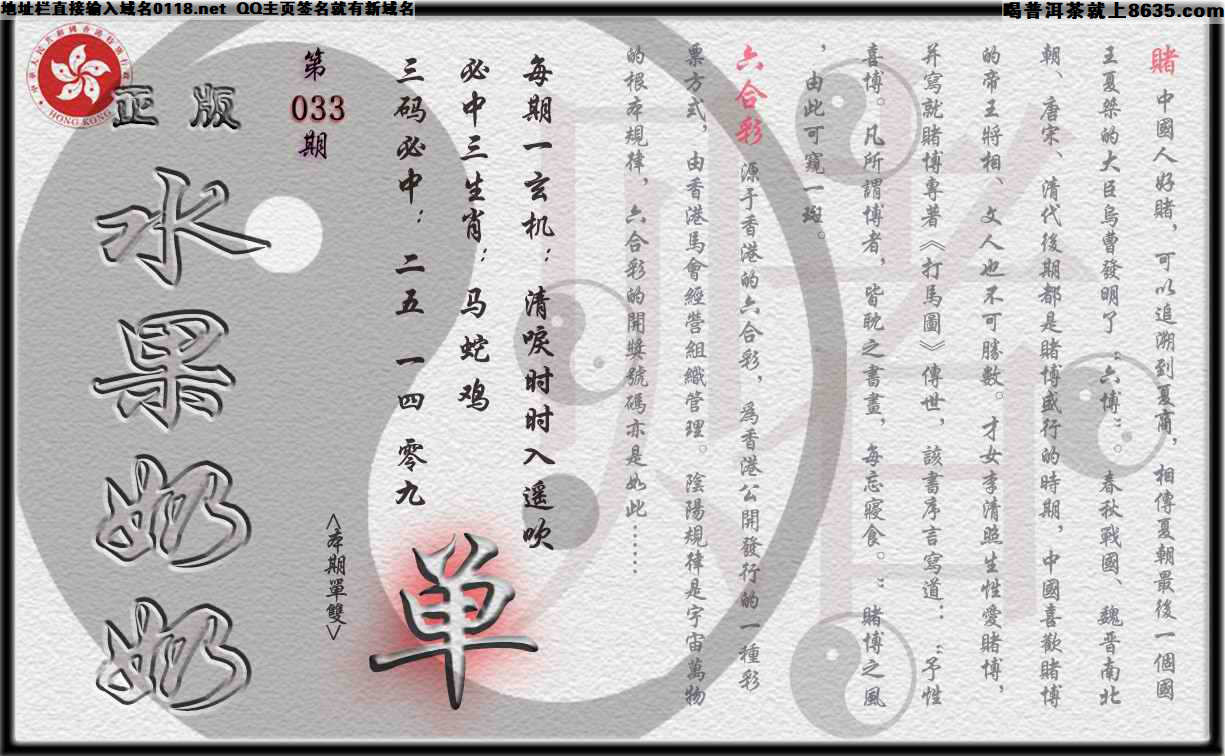 地址栏直接输入域名0118.net QQ主页签名就有新域名
喝普洱茶就上8635.com
賭 中國人好賭，可以追溯到夏商，相傳夏朝最後一個國
王夏桀的大臣烏曹發明了“六博”。春秋戰國、魏晋南北
朝、唐宋、清代後期都是賭博盛行的時期，中國喜歡賭博
的帝王將相、文人也不可勝數。才女李清照生性愛賭博，
并寫就賭博專著《打馬圖》傳世，該書序言寫道：：“予性
喜博。凡所謂博者，皆耽之書畫，每忘寢食。”賭博之風
，由此可窺一斑。
六合彩 源于香港的六合彩，爲香港公開發行的一種彩
票方式，由香港馬會經營組織管理。陰陽規律是宇宙萬物
的根本規律，六合彩的開獎號碼亦是如此……
每期一玄机：清唳时时入遥吹
必中三生肖：马蛇鸡
三码必中：二五 一四 零九
单
<本期單雙>
第
033
期
正版
水果奶奶
HONG KONG